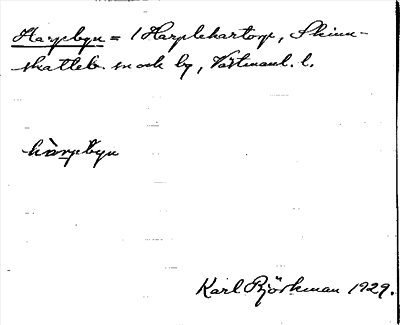 Harpbyn = / Harplekartorp, Skinn-
skatteb. sn och by, Västmanl. l.
hàrpbyn
Karl Björkman 1929.